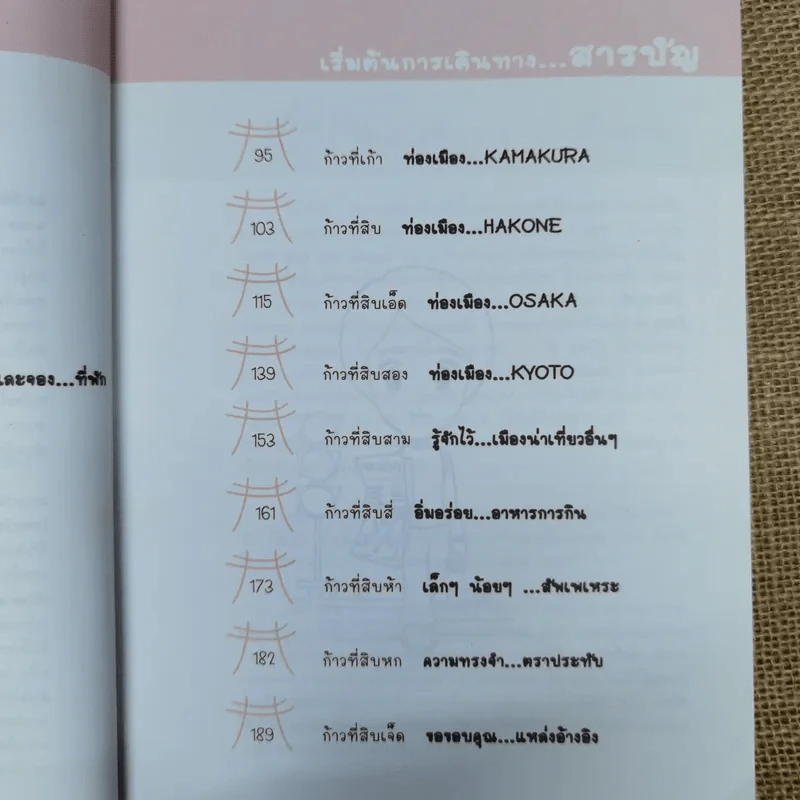 เริ่มต้นการเดินทาง...สารบัญ
95 ก้าวที่เก้า ท่องเมือง...KAMAKURA
103 ก้าวที่สิบ ท่องเมือง...HAKONE
115 ก้าวที่สิบเอ็ด ท่องเมือง...OSAKA
139 ก้าวที่สิบสอง ท่องเมือง...KYOTO
153 ก้าวที่สิบสาม รู้จักไว้...เมืองน่าเที่ยวอื่นๆ
161 ก้าวที่สิบสี่ อิ่มอร่อย...อาหารการกิน
173 ก้าวที่สิบห้า เล็กๆ น้อยๆ ...สัพเพเหระ
182 ก้าวที่สิบหก ความทรงจำ...ตราประทับ
189 ก้าวที่สิบเจ็ด ขอขอบคุณ...แหล่งอ้างอิง
และจอง...ที่พัก